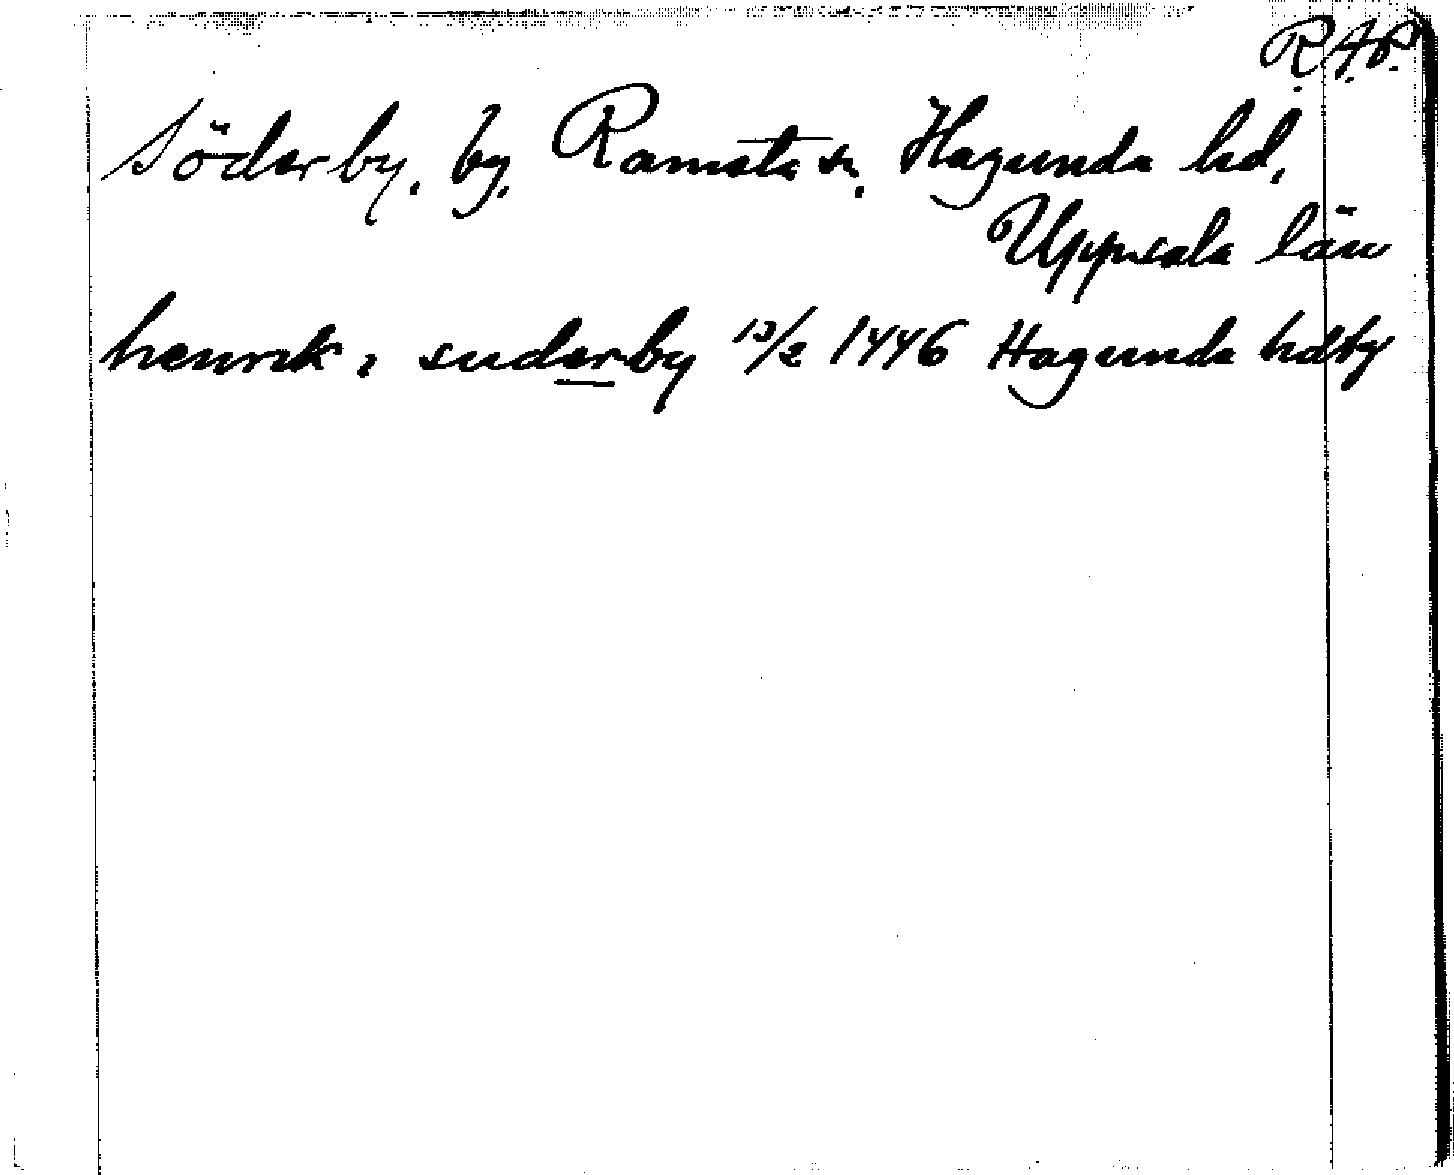 R.A.P.
Söderby, by, Ramsta sn, Hagunda hd,
Uppsala län
henrik i suderby 13/2 1446 Hagunda hdby